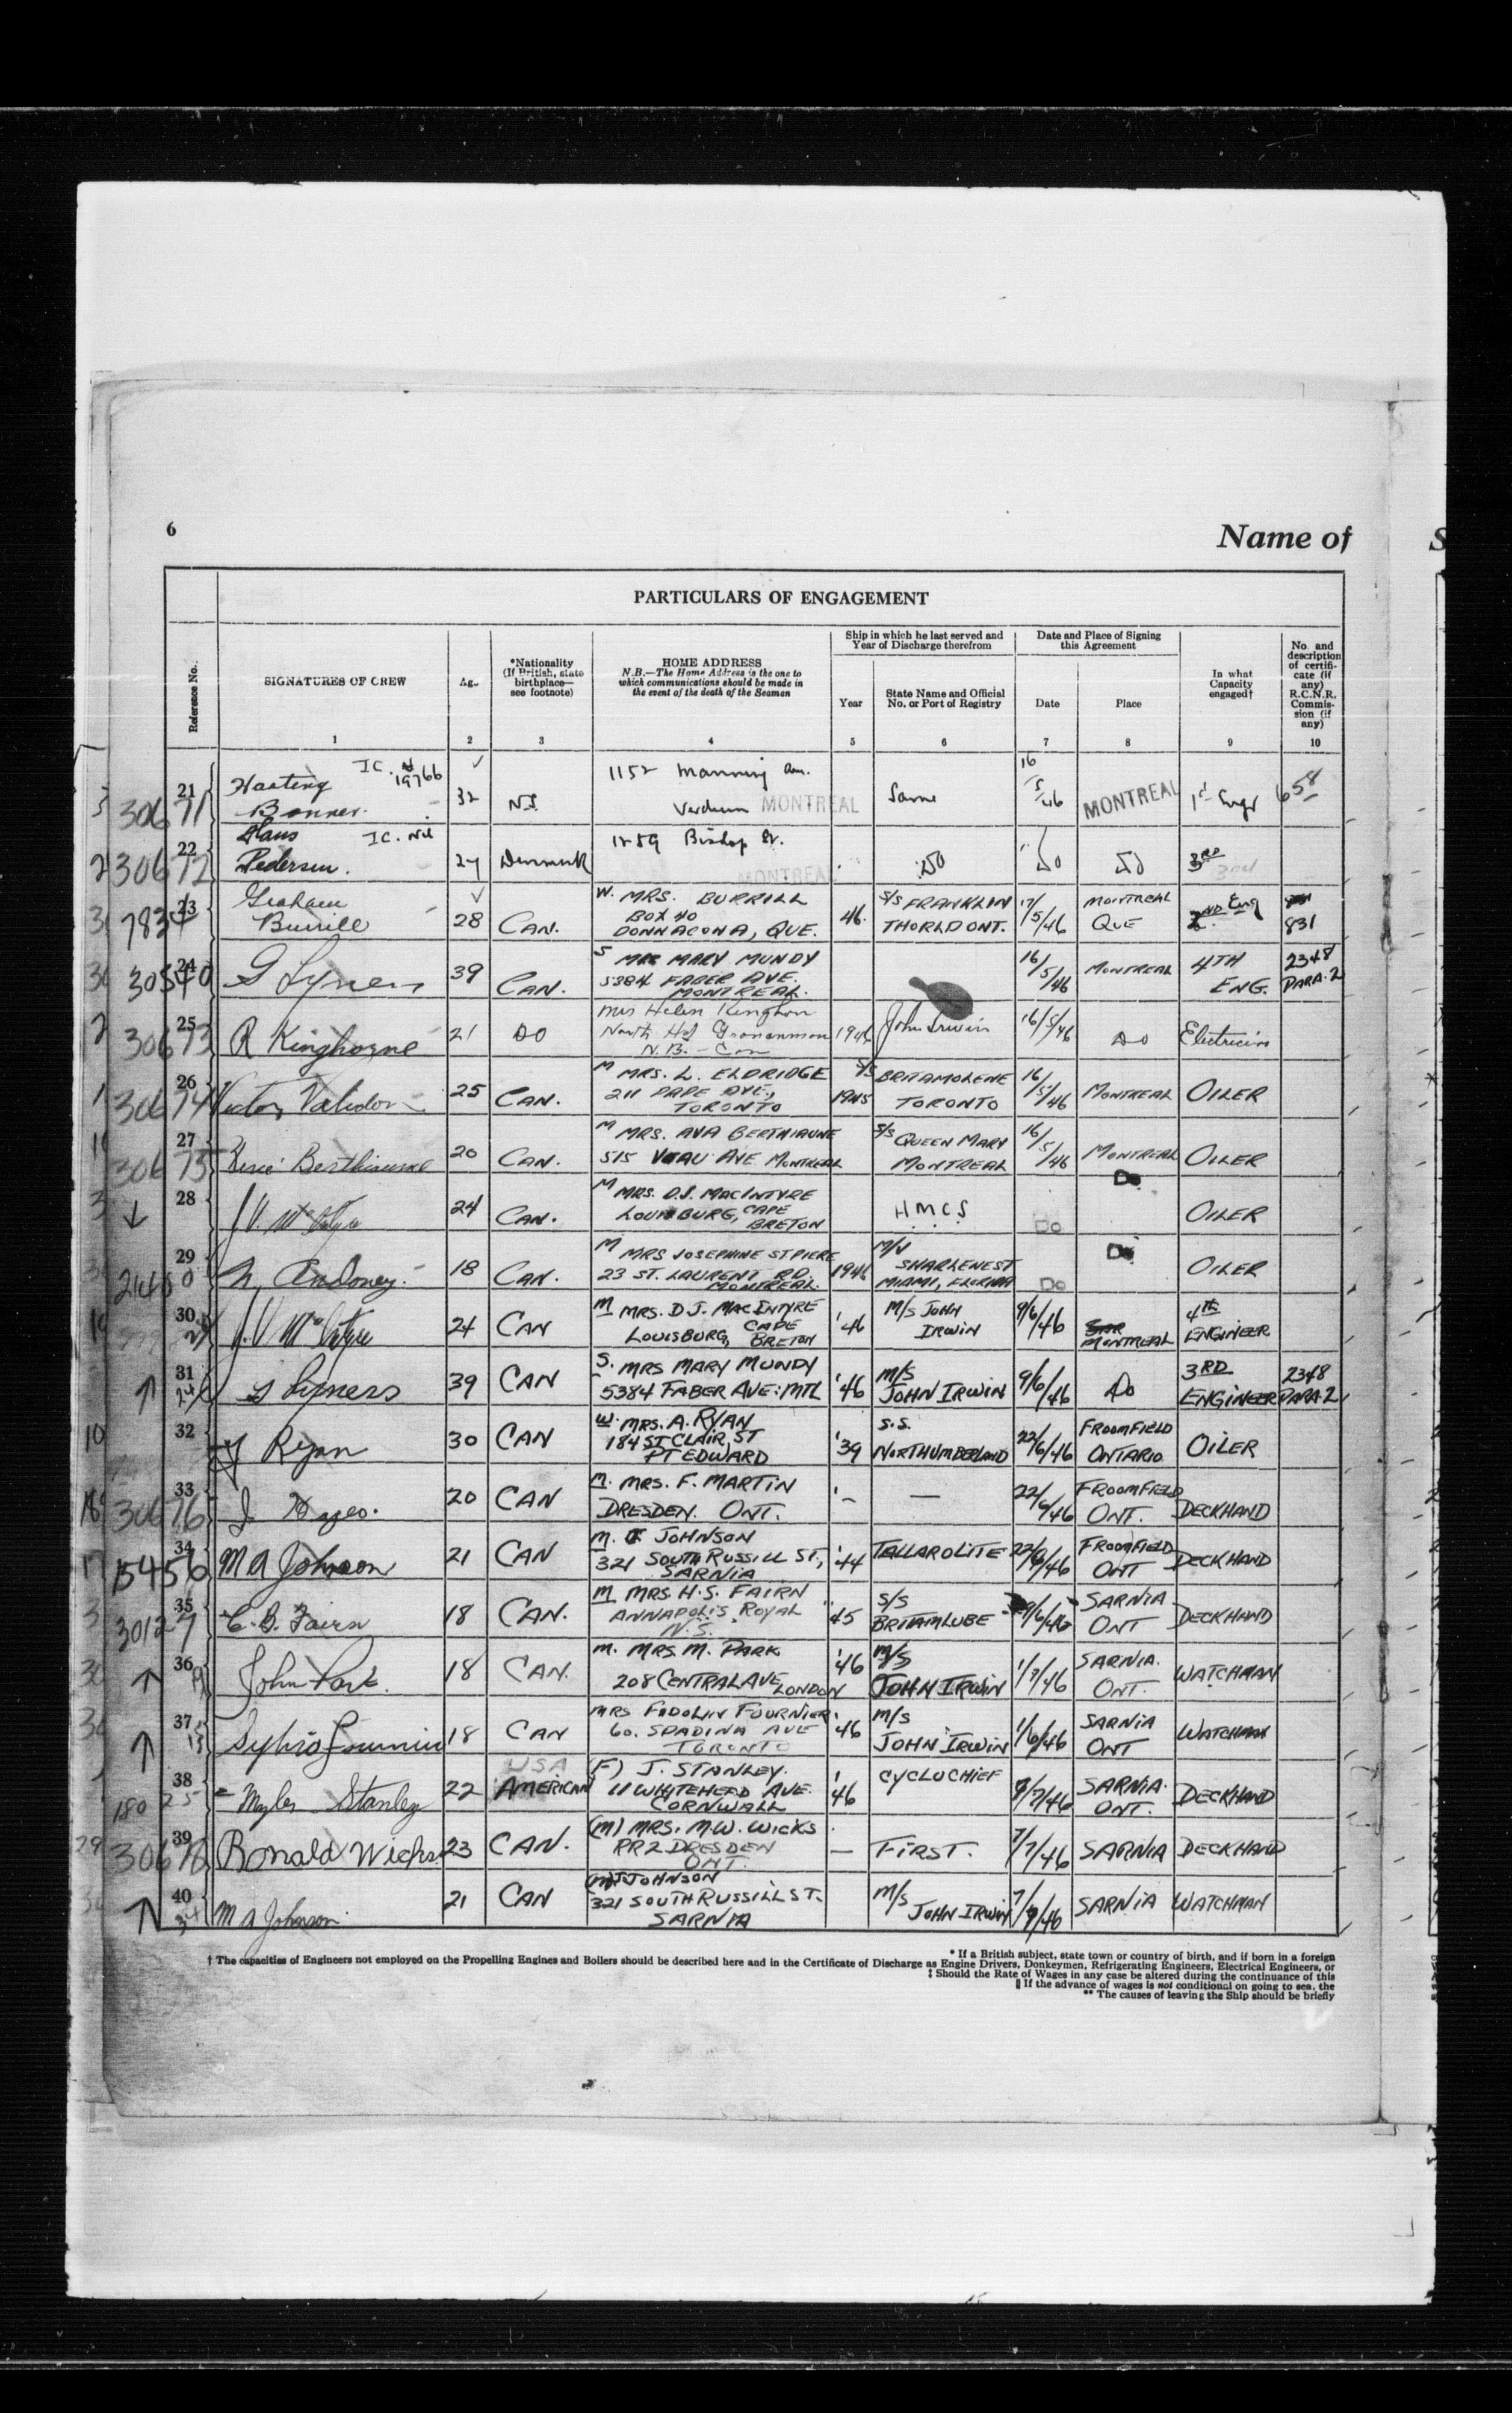 6
Name of
PARTICULARS OF ENGAGEMENT
Reference No.
SIGNATURES OF CREW
Age
*Nationality
(If British, state
birthplace—
see footnote)
HOME ADDRESS
N.B.—The Home Address is the one to
which communications should be made in
the event of the death of the Seaman
Ship in which he last served and
Year of Discharge therefrom
Year
State Name and Official
No. or Port of Registry
Date and Place of Signing
this Agreement
Date
Place
In what
Capacity
engaged†
No. and
description
of certifi-
cate (if
any)
R.C.N.R.
Commis-
sion (if
any)
1 2 3 4 5 6 7 8 9 10
30671 21 Bonner. IC. 19766 32 1152 Manning Ave. Verdun MONTREAL Same 16/5/46 MONTREAL 1st Engr 658
30672 22 Hans Pedersen. IC. Nil 24 Denmark 1259 Bishop St. MONTREAL Do Do Do 3RD
7834 23 Graham Burrill 28 CAN. W. MRS. BURRILL
BOX 40
DONNACONA, QUE. 46. S/S FRANKLIN
THORLD ONT. 17/5/46 MONTREAL
QUE 2ND Eng 831
30540 24 G Lyners 39 CAN. S MRS MARY MUNDY
5384 FABER AVE.
MONTREAL. 16/5/46 MONTREAL 4TH
ENG. 2348
PARA. 2
30673 25 R Kinghorne 21 DO Mrs Helen Kinghorn
North Hd
N.B. - Can 1946 John Irwin 16/5/46 Do Electrician
30674 26 Victor 25 CAN. M MRS. L. ELDRIDGE
211 PAPE AVE.,
TORONTO 1945 S/S BRITAMOLENE
TORONTO 16/5/46 MONTREAL OILER
30675 27 René Berthiaume 20 CAN. M MRS. AVA BERTHIAUME
515 VIAU AVE MONTREAL S/S QUEEN MARY
MONTREAL 16/5/46 MONTREAL OILER
28 J.V. McIntyre 24 CAN. M MRS. D.J. MACINTYRE
LOUISBURG, CAPE
BRETON H.M.C.S Do Do OILER
29 18 CAN. M MRS JOSEPHINE ST PIERE
23 ST. LAURENT RD.
MONTREAL. 1946 M/V
SHARLENEST
MIAMI, FLORIDA Do Do OILER
30 J.V McIntyre 24 CAN M MRS. D J. MACINTYRE
LOUISBURG, CAPE
BRETON '46 M/S JOHN
IRWIN 9/6/46 MONTREAL 4th
ENGINEER
31 G Lyners 39 CAN S. MRS MARY MUNDY
5384 FABER AVE: MTL '46 M/S
JOHN IRWIN 9/6/46 Do 3RD
ENGINEER 2348
PARA. 2
32 Ryan 30 CAN W. MRS. A. RYAN
184 ST CLAIR, ST
PT EDWARD '39 S.S.
NORTHUMBERLAND 22/6/46 FROOMFIELD
ONTARIO OILER
30676 33 20 CAN M. MRS. F. MARTIN
DRESDEN. ONT. '- — 22/6/46 FROOMFIELD
ONT. DECKHAND
15456 34 M A Johnson 21 CAN M. JOHNSON
321 SOUTH RUSSILL ST,
SARNIA '44 TALLAROLITE 22/6/46 FROOMFIELD
ONT DECKHAND
30127 35 C. B. Fairn 18 CAN. M MRS. H.S. FAIRN
ANNAPOLIS ROYAL
N.S. 45 S/S
BRITAMLUBE 29/6/46 SARNIA
ONT DECKHAND
36 John Park. 18 CAN. M. MRS. M. PARK
208 CENTRAL AVE,
LONDON '46 M/S
JOHN IRWIN 1/7/46 SARNIA.
ONT. WATCHMAN
37 Sylvio Fournier 18 CAN MRS FIDOLIN FOURNIER
60. SPADINA AVE
TORONTO '46 M/S
JOHN IRWIN 1/6/46 SARNIA
ONT WATCHMAN
180 25 38 Myles Stanley 22 USA
AMERICAN (F) J. STANLEY.
11 WHITEHEAD AVE.
CORNWALL '46 CYCLOCHIEF 9/7/46 SARNIA.
ONT. DECKHAND
39 Ronald Wicks 23 CAN. (M) MRS. M.W. WICKS
RR2 DRESDEN
ONT. — FIRST. 7/7/46 SARNIA DECKHAND
40 M A Johnson 21 CAN (M) J JOHNSON
321 SOUTH RUSSILL ST.
SARNIA M/S
JOHN IRWIN 7/7/46 SARNIA WATCHMAN
* If a British subject, state town or country of birth, and if born in a foreign
† The capacities of Engineers not employed on the Propelling Engines and Boilers should be described here and in the Certificate of Discharge as Engine Drivers, Donkeymen, Refrigerating Engineers, Electrical Engineers, or
‡ Should the Rate of Wages in any case be altered during the continuance of this
‖ If the advance of wages is not conditional on going to sea, the
** The causes of leaving the Ship should be briefly